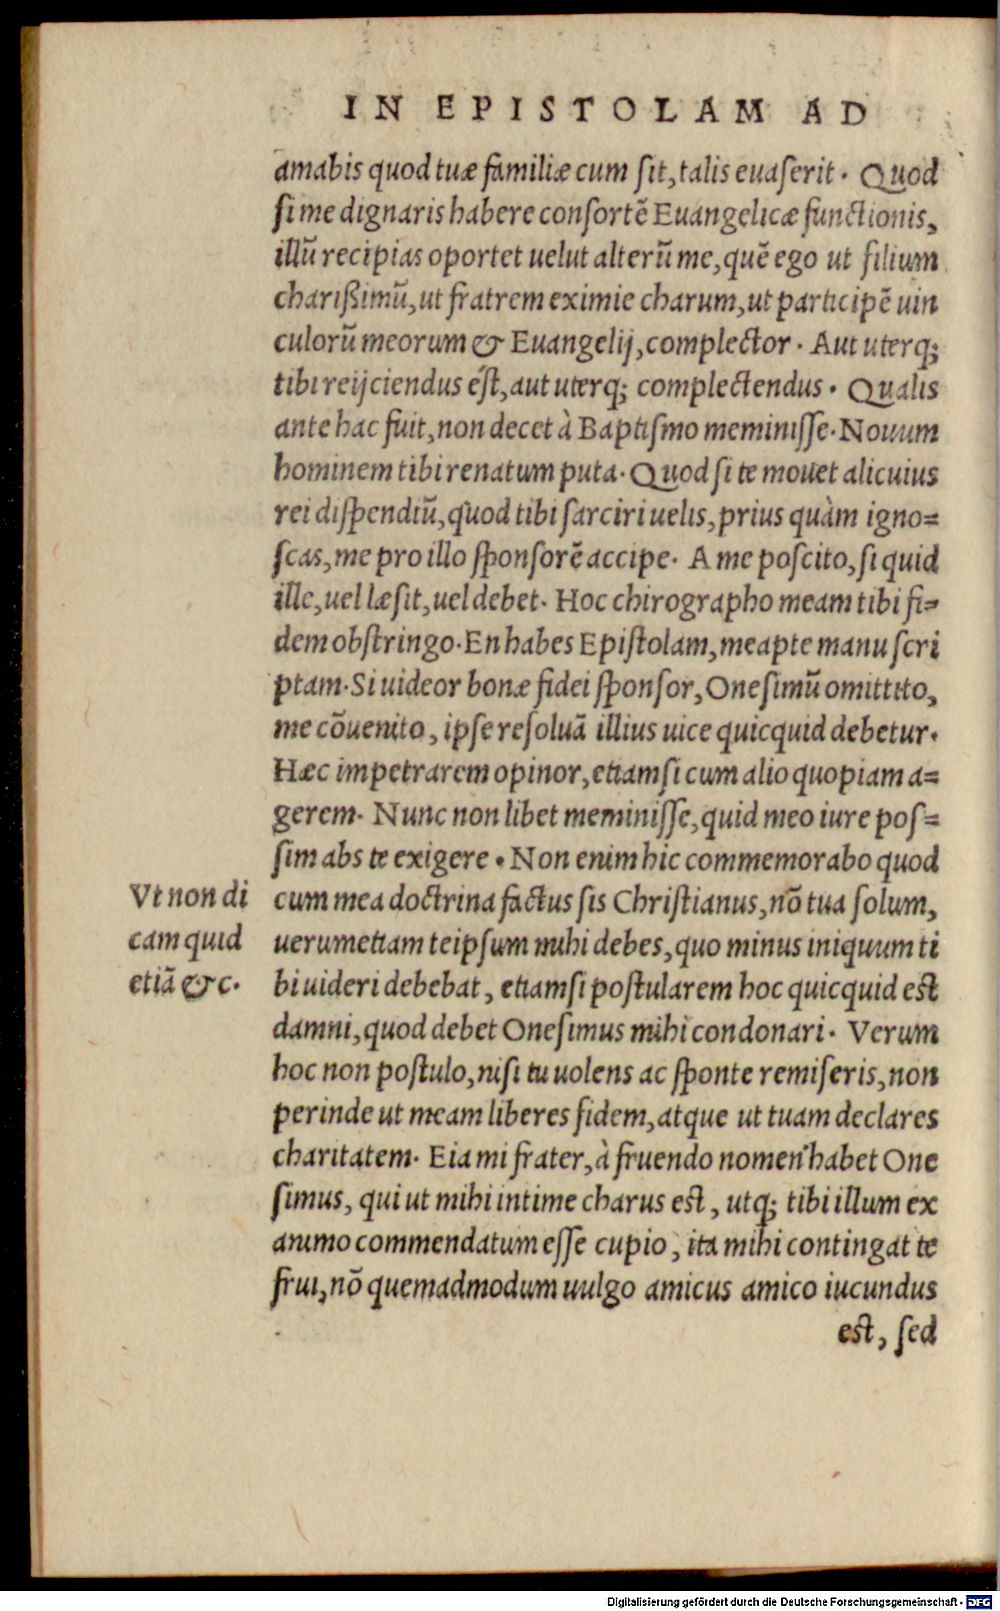 IN EPISTOLAM AD
amabis quod tuæ familiæ cum sit, talis euaserit. Quod
si me dignaris habere consortē Euangelicæ functionis,
illū recipias oportet uelut alterū me, quē ego ut filium
charißimū, ut fratrem eximie charum, ut participē uin
culorū meorum & Euangelij, complector. Aut uterq;
tibi reijciendus est, aut uterq; complectendus. Qualis
ante hac fuit, non decet à Baptismo meminisse. Nouum
hominem tibi renatum puta. Quod si te mouet alicuius
rei dispendiū, quod tibi sarciri uelis, prius quàm igno=
scas, me pro illo sponsorē accipe. A me poscito, si quid
ille, uel læsit, uel debet. Hoc chirographo meam tibi fi=
dem obstringo. En habes Epistolam, meapte manu scri
ptam. Si uideor bonæ fidei sponsor, Onesimū omittito,
me cōuenito, ipse resoluā illius uice quicquid debetur.
Hæc impetrarem opinor, etiamsi cum alio quopiam a=
gerem. Nunc non libet meminisse, quid meo iure pos=
sim abs te exigere. Non enim hic commemorabo quod
Vt non di
cum mea doctrina factus sis Christianus, nō tua solum,
cam quid
uerumetiam teipsum mihi debes, quo minus iniquum ti
etiā &c.
bi uideri debebat, etiamsi postularem hoc quicquid est
damni, quod debet Onesimus mihi condonari. Verum
hoc non postulo, nisi tu uolens ac sponte remiseris, non
perinde ut meam liberes fidem, atque ut tuam declares
charitatem. Eia mi frater, à fruendo nomen habet One
simus, qui ut mihi intime charus est, utq; tibi illum ex
animo commendatum esse cupio, ita mihi contingat te
frui, nō quemadmodum uulgo amicus amico iucundus
est, sed
Digitalisierung gefördert durch die Deutsche Forschungsgemeinschaft - DFG